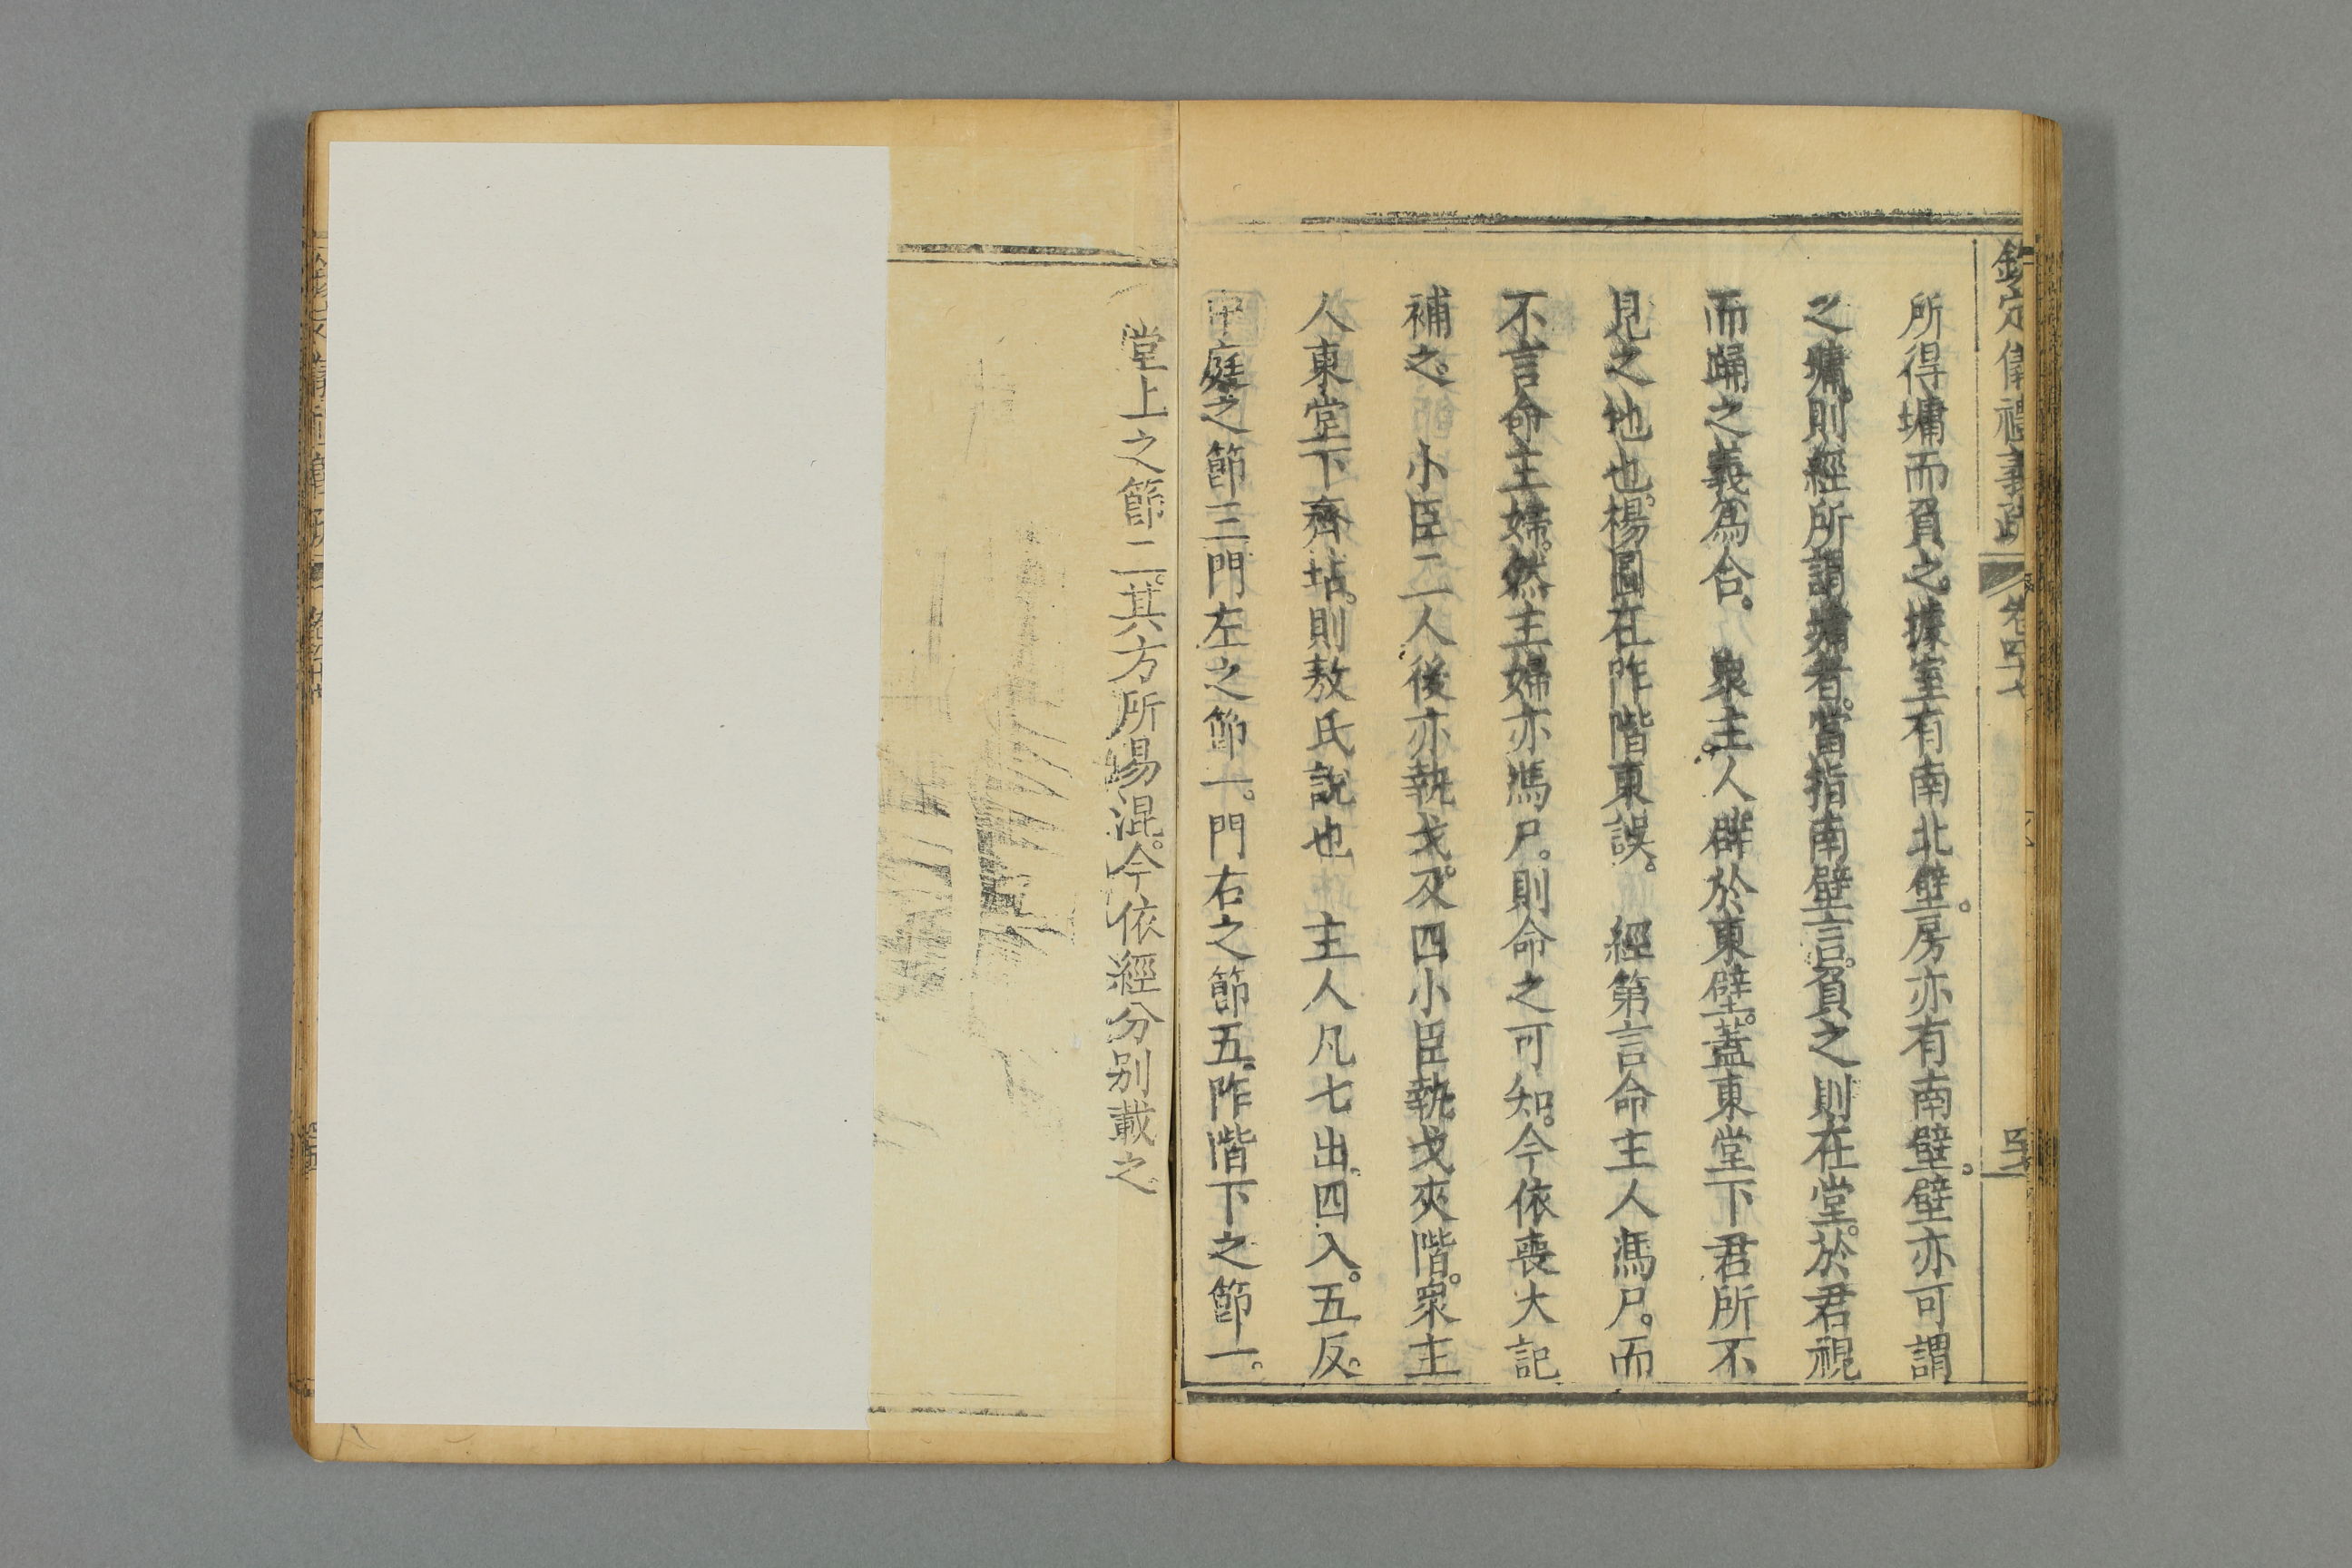 欽定儀禮義疏 卷四十七
所得墉而負之。據室有南北壁。房亦有南壁。壁亦可謂
之墉。則經所謂墉者。當指南壁言。負之則在堂。於君視
而踊之義爲合。 衆主人辟於東壁。蓋東堂下君所不
見之地也。楊圖在阼階東誤。 經第言命主人馮尸。而
不言命主婦。然主婦亦馮尸。則命之可知。今依喪大記
補之。 小臣二人後亦執戈。及四小臣執戈夾階。衆主
人東堂下齊坫。則敖氏說也 主人凡七出。四入。五反。
中庭之節三門左之節一。門右之節五。阼階下之節一。
堂上之節二。其方所易混。今依經分別載之